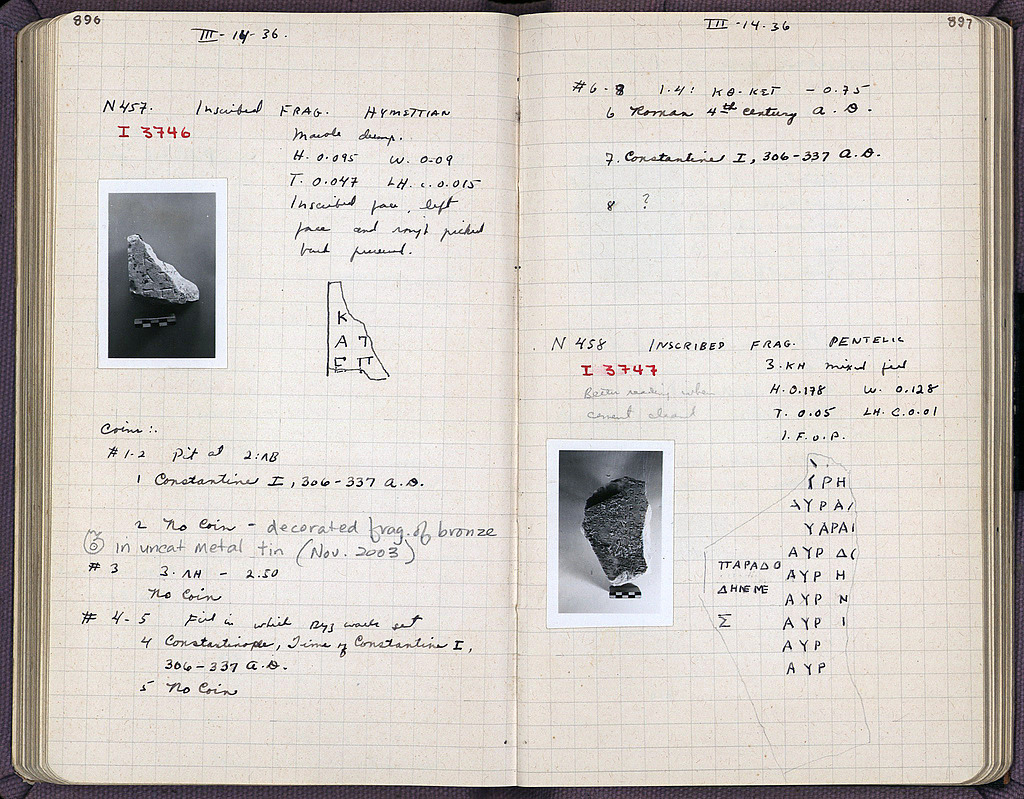 896
III-14-36.
N457. Inscribed FRAG. HYMETTIAN
I 3746
Marble
H. 0.095 W. 0.09
T. 0.047 LH. c. 0.015
Inscribed face, left
face and rough picked
back preserved.
Κ
Α
Ε Π
Coins:.
#1-2 Pit at 2:ΛΒ
1 Constantine I, 306-337 A.D.
2 No Coin - decorated frag. of bronze
in uncat metal tin (Nov. 2003)
#3 3.ΛΗ - 2.50
No Coin
# 4-5 Fill in which Byz walls set
4 Constantinople, Time of Constantine I,
306-337 A.D.
5 No Coin
897
III-14-36
#6-8 1.4: ΚΘ-ΚΣΤ - 0.75
6 Roman 4th century A.D.
7. Constantine I, 306-337 A.D.
8 ?
N 458 INSCRIBED FRAG. PENTELIC
I 3747
3.ΚΗ mixed fill
Better reading when
cement cleaned
H. 0.178 W. 0.128
T. 0.05 LH. C. 0.01
I.F.O.P.
ΥΡΗ
ΑΥΡΑ
ΥΑΡΑΙ
ΑΥΡ Δ
ΠΑΡΑΔΟ ΑΥΡ Η
ΔΗΝΕΜΕ ΑΥΡ Ν
Σ ΑΥΡ Ι
ΑΥΡ
ΑΥΡ